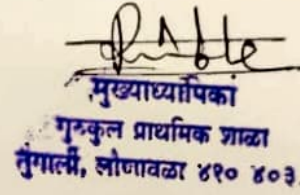 मुख्याध्यापिका
गुरुकुल प्राथमिक शाळा
तुंगार्ली, लोणावळा ४१० ४०३.